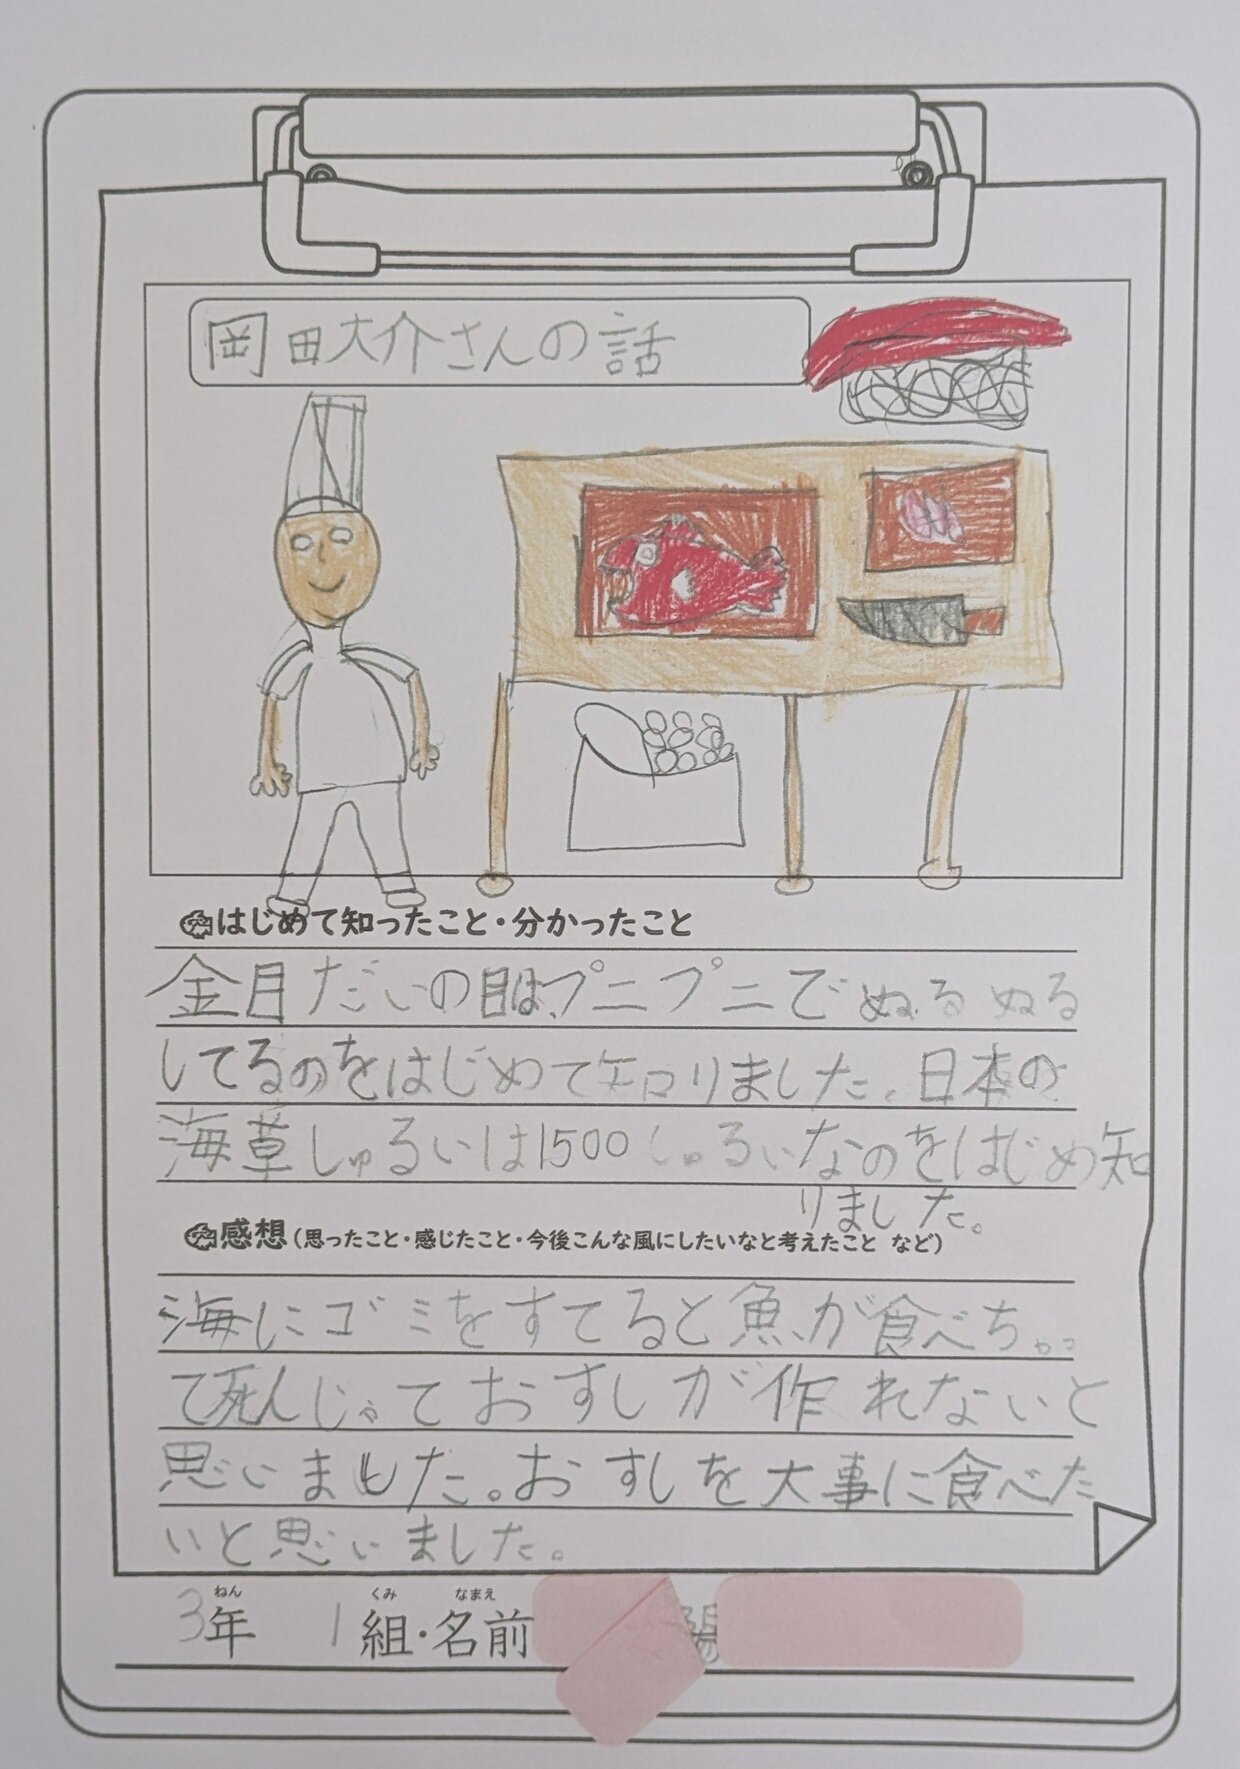 岡田大介さんの話
はじめて知ったこと・分かったこと
金目だいの目は、プニプニでぬるぬる
してるのをはじめて知りました。日本の
海草しゅるいは1500しゅるいなのをはじめ知
りました。
感想（思ったこと・感じたこと・今後こんな風にしたいなと考えたこと など）
海にゴミをすてると魚が食べちゃっ
て死んじゃっておすしが作れないと
思いました。おすしを大事に食べた
いと思いました。
ねん くみ なまえ
3年 1組・名前